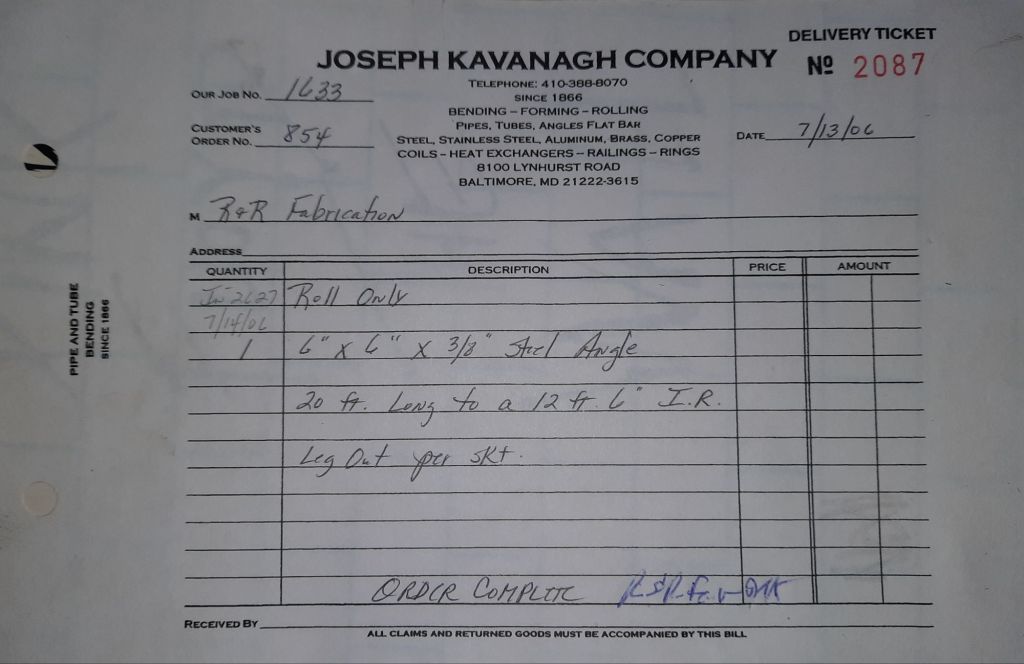 DELIVERY TICKET
JOSEPH KAVANAGH COMPANY
Nº 2087
TELEPHONE: 410-388-8070
SINCE 1866
BENDING – FORMING – ROLLING
PIPES, TUBES, ANGLES FLAT BAR
STEEL, STAINLESS STEEL, ALUMINUM, BRASS, COPPER
COILS – HEAT EXCHANGERS – RAILINGS – RINGS
8100 LYNHURST ROAD
BALTIMORE, MD 21222-3615
OUR JOB NO. 1633
CUSTOMER'S
ORDER NO. 854
DATE 7/13/06
M R&R Fabrication
ADDRESS
QUANTITY DESCRIPTION PRICE AMOUNT
Roll Only
7/14/06
1 6" X 6" X 3/8" Steel Angle
20 ft. Long to a 12 ft. 6" I.R.
Leg Out per skt.
ORDER COMPLETE
RECEIVED BY
ALL CLAIMS AND RETURNED GOODS MUST BE ACCOMPANIED BY THIS BILL
PIPE AND TUBE
BENDING
SINCE 1866